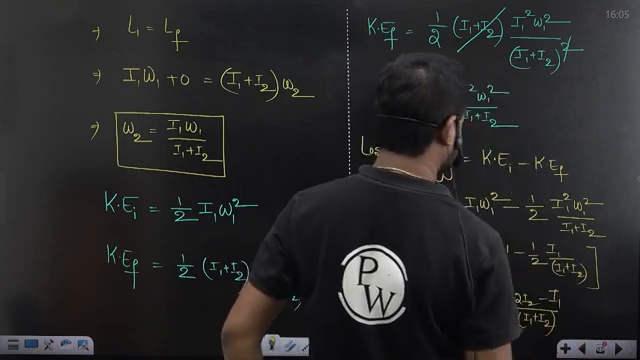 ⇒ L₁ = L_f
⇒ I₁W₁ + 0 = (I₁+I₂) ω₂
⇒ ω₂ = I₁W₁ / (I₁+I₂)
K.E₁ = 1/2 I₁ω₁²
K.E_f = 1/2 (I₁+I₂)
16:05
K.E_f = 1/2 (I₁+I₂) I₁²ω₁² / (I₁+I₂)²
ω₁² / I₁+I₂
Los
= K.E₁ − K.E_f
I₁W₁² − 1/2 I₁²W₁² / (I₁+I₂)
− 1/2 I₁ / (I₁+I₂) ]
2I₂ − I₁ / (I₁+I₂)
PW